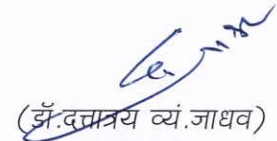 (डॉ.दत्तात्रय व्यं.जाधव)